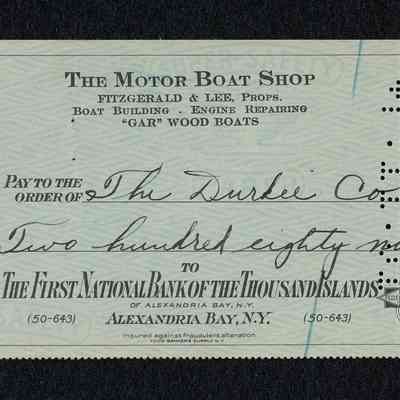 THE MOTOR BOAT SHOP
FITZGERALD & LEE, PROPS.
BOAT BUILDING - ENGINE REPAIRING
"GAR" WOOD BOATS
PAY TO THE
ORDER OF The Durkee Co
Two hundred eighty
TO
THE FIRST NATIONAL BANK OF THE THOUSAND ISLANDS
OF ALEXANDRIA BAY, N.Y.
(50-643) ALEXANDRIA BAY, N.Y. (50-643)
Insured against fraudulent alteration